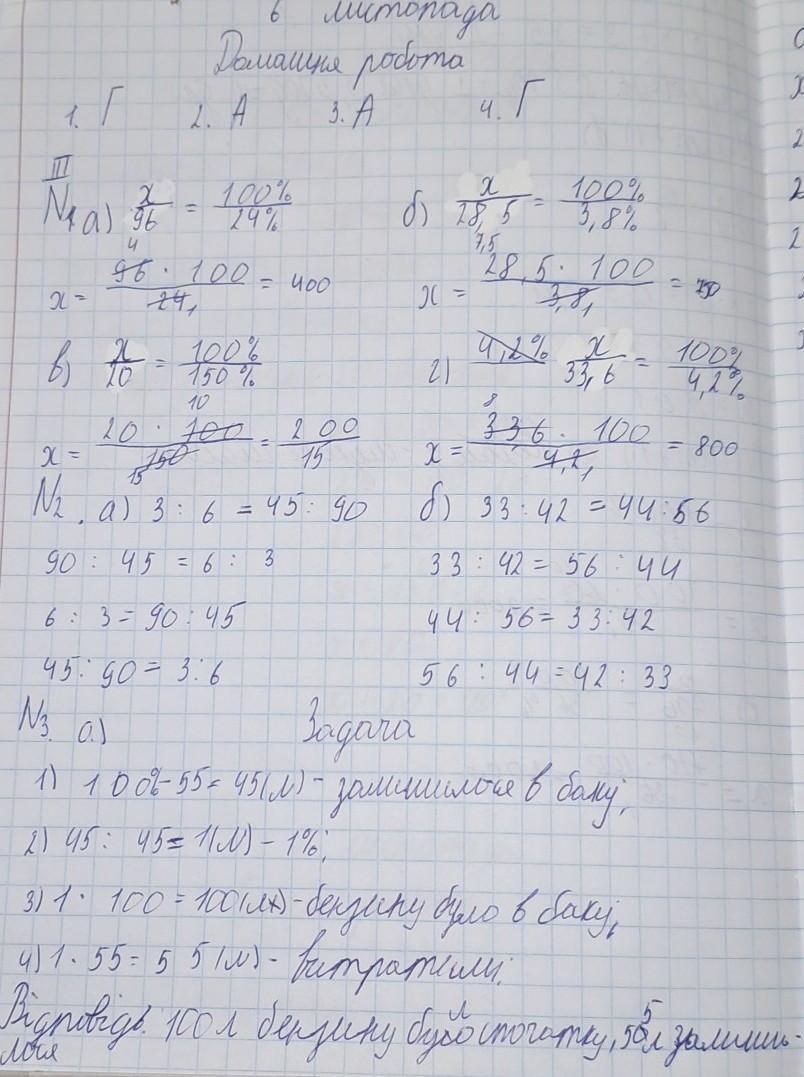 6 листопада
Домашня робота
1. Г 2. А 3. А 4. Г
III
N1 а) x/96 = 100%/24% б) x/28,5 = 100%/3,8%
4 7,5
x = 96 · 100/24 1 = 400 x = 28,5 · 100/3,8 1 =
в) x/20 = 100%/150% г) 4,2% x/33,6 = 100%/4,2%
10 8
x = 20 · 100/150 15 = 200/15 x = 336 · 100/4,2 1 = 800
N2. а) 3 : 6 = 45 : 90 б) 33 : 42 = 44 : 56
90 : 45 = 6 : 3 33 : 42 = 56 : 44
6 : 3 = 90 : 45 44 : 56 = 33 : 42
45 : 90 = 3 : 6 56 : 44 = 42 : 33
N3. а) Задача
1) 100%-55 = 45(л) - залишилося в баку;
2) 45 : 45 = 1(л) - 1%;
3) 1 · 100 = 100(л) - бензину було в баку;
4) 1 · 55 = 55(л) - витратили;
Відповідь. 100 л бензину було спочатку, 55 л залиши-
лося